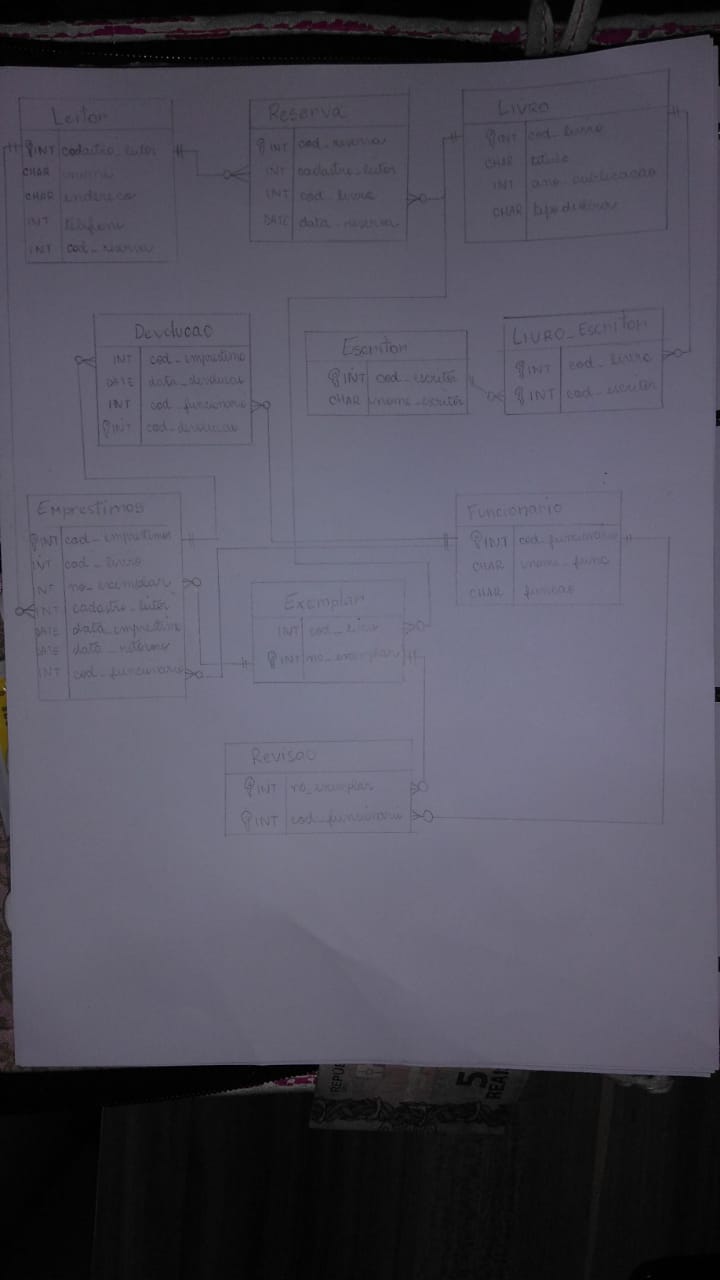 Leitor
INT cadastro_leitor
CHAR nome
CHAR endereco
INT telefone
INT cod_reserva
Reserva
INT cod_reserva
INT cadastro_leitor
INT cod_livro
DATE data_reserva
LIVRO
INT cod_livro
CHAR titulo
INT ano_publicacao
CHAR tipo de obra
Devolucao
INT cod_emprestimo
DATE data_devolucao
INT cod_funcionario
INT cod_devolucao
Escritor
INT cod_escritor
CHAR nome_escritor
LIVRO_Escritor
INT cod_livro
INT cod_escritor
Emprestimos
INT cod_emprestimos
INT cod_livro
INT no_exemplar
INT cadastro_leitor
DATE data_emprestimo
DATE data_retorno
INT cod_funcionario
Funcionario
INT cod_funcionario
CHAR nome_func
CHAR funcao
Exemplar
INT cod_livro
INT no_exemplar
Revisao
INT no_exemplar
INT cod_funcionario
REPÚB
5
REAI